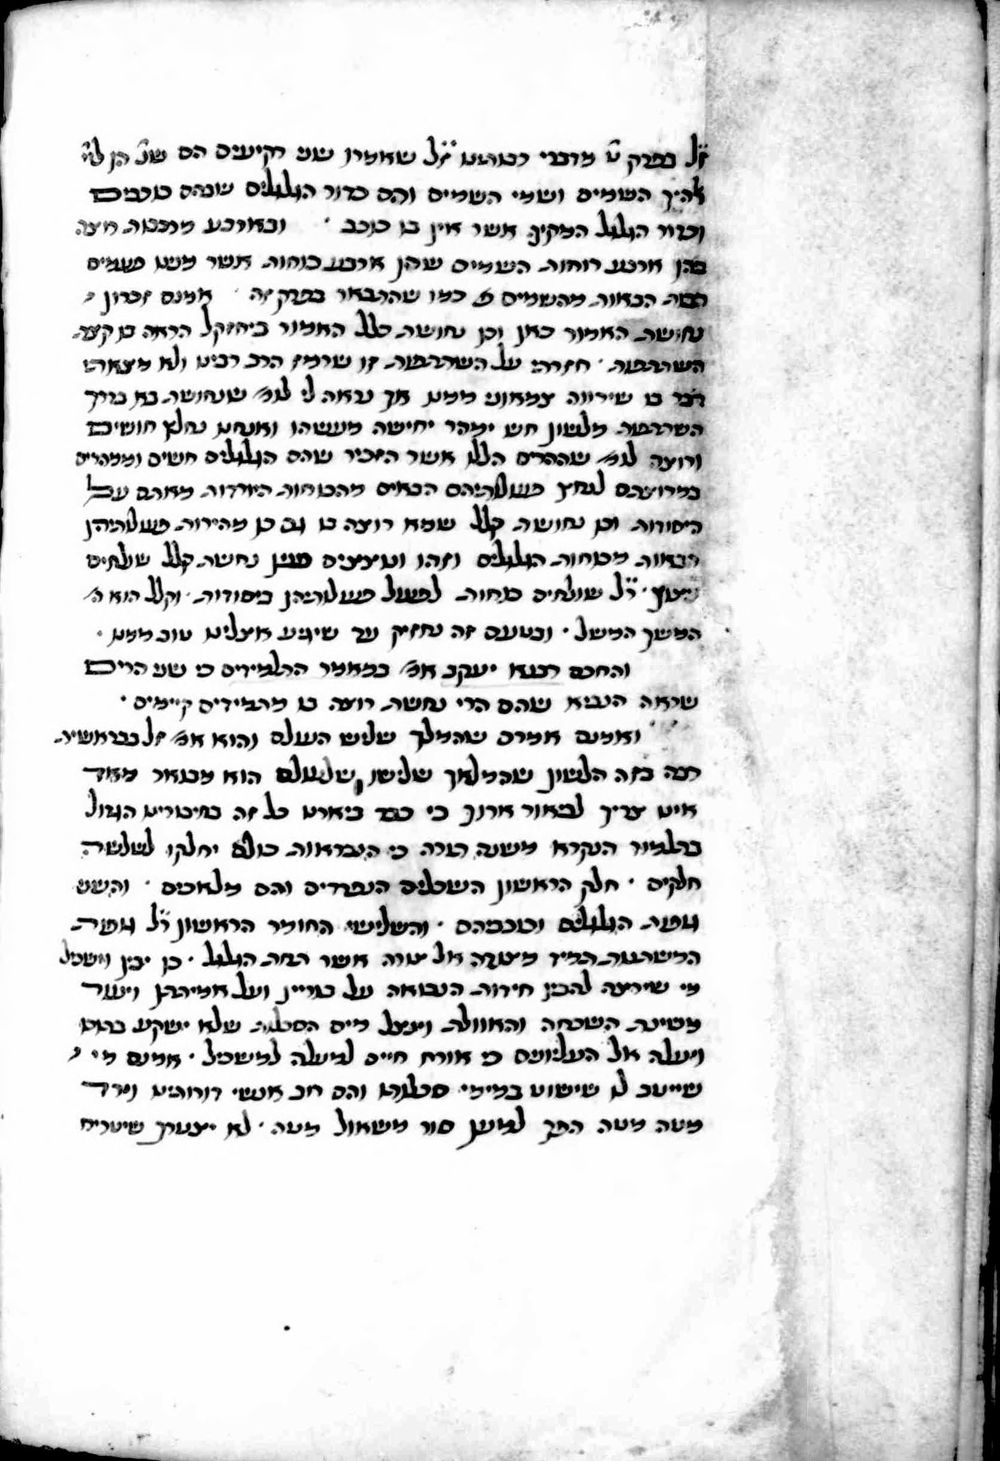 ז״ל בפרק ע׳ מדברי רבותינו ז״ל שאמרו שני רקיעים הם שנ׳ הן לי״י
אלהיך השמים ושמי השמים והם כדור הגלגלים שבהם כוכבים
וכדור הגלגל המקיף אשר אין בו כוכב · ובארבע מרכבות רוצה
בהן ארבע רוחות השמים שהן ארבע כוחות אשר מהם פעמים
הבאות מהשמים כמו שהתבאר בפרק זה · אמנם זכרון
נחושת האמור כאן וכן נחושת קלל האמור ביחזקאל הראה בו קצת
השתתפות · חזרתי על השתתפות זו שרמז הרב רבינו ולא מצאתי
דבר בו שירווה צמאוני ממנו אך נראה לי לומ׳ שנחושת בא בדרך
השתתפות מלשון חש ימהר יחישה מעשהו ואנחנו נחלץ חושים
ורוצה לומ׳ שההרים הללו אשר הזכיר שהם הגלגלים חשים וממהרים
במרוצתם לנחץ פעולותיהם הבאים מהכוחות היורדות מאתם על
היסודות וכן נחושת קלל שמא רוצה בו גם כן מהירות פעולותיהן
הבאות מכוחות הגלגלים וזהו ונוצצים כעין נחשת קלל שולחים
ניצוץ · ר״ל שולחים כוחות לפעול פעולותיהן ביסודות · וקלל הוא
המשך המשל · ובטעם זה נחזיק עד שיגיע אצלינו טוב ממנו ·
והחכם רבנא יעקב אמ׳ במאמר התלמידים כי שני הרים
שראה הנביא שהם הרי נחשת רוצה בו מתמידים קיימים ·
ואומנם אמרם שהמלאך שליש העולם והוא אמ׳ ז״ל בבראשית
רבה בזה הלשון שהמלאך שלישו של עולם הוא מבואר מאד
אינו צריך לביאור ארוך כי כבר ביארנו כל זה בחיבורינו הגדול
בתלמוד הנקרא משנה תורה כי הנבראות כולם יחלקו לשלשה
חלקים · חלק הראשון השכלים הנפרדים והם מלאכים · והשני
גופות הגלגלים וכוכביהם · והשלישי החומר הראשון ר״ל גופות
המשתנות תמיד מצורה אל צורה אשר תחת הגלגל · כן יבין וישכיל
מי שירצה להבין חידות הנבואה על בוריין ועל אמיתתן ויעור
משינת השכחה והאולת וינצל מים הסכלות שלא ישקע בהם
ויעלה אל העליונים כי אורח חיים למעלה למשכיל · אמנם מי
שייטב לו שישוט במימי סכלותו והם רוב אנשי דורותינו וירד
מטה מטה הפך למען סור משאול מטה · לא יצטרך שיטריח